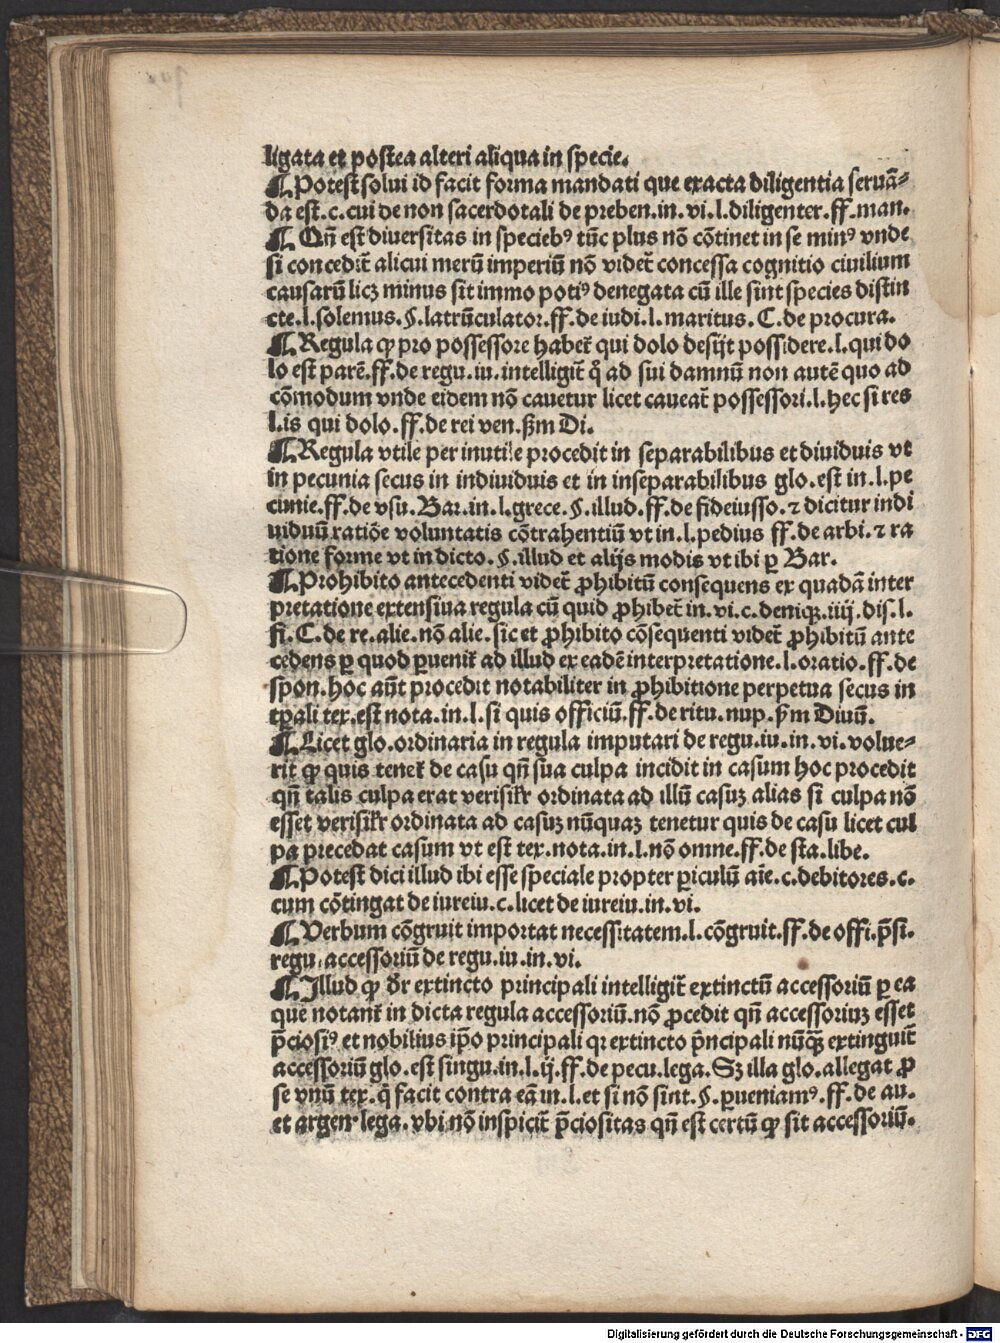 ligata et postea alteri aliqua in specie.
¶ Potest solui id facit forma mandati que exacta diligentia seruā⸗
da est.c.cui de non sacerdotali de preben.in.vi.l.diligenter.ff.man.
¶ Qñ est diuersitas in specieb⁹ tūc plus nō cōtinet in se min⁹ vnde
si concedit̄ alicui merū imperiū nō videt̄ concessa cognitio ciuilium
causarū licꝫ minus sit immo poti⁹ denegata cū ille sint species distin
cte.l.solemus.§.latrūculator.ff.de iudi.l.maritus.C.de procura.
¶ Regula ꝙ pro possessore habet̄ qui dolo desijt possidere.l.qui do
lo est parē.ff.de regu.iu.intelligit̄ qͦ ad sui damnū non autē quo ad
cōmodum vnde eidem nō cauetur licet caueat̄ possessori.l.hec si res
l.is qui dolo.ff.de rei ven.ẜm Di.
¶ Regula vtile per inutile procedit in separabilibus et diuiduis vt
in pecunia secus in indiuiduis et in inseparabilibus glo.est in.l.pe
cunie.ff.de vsu.Bar.in.l.grece.§.illud.ff.de fideiusso.⁊ dicitur indi
uiduū ratiōe voluntatis cōtrahentiū vt in.l.pedius ff.de arbi.⁊ ra
tione forme vt in dicto.§.illud et alijs modis vt ibi ꝑ Bar.
¶ Prohibito antecedenti videt̄ ꝓhibitū consequens ex quadā inter
pretatione extensiua regula cū quid ꝓhibet̄ in.vi.c.deniqꝫ.iiij.dis.l.
fi.C.de re.alie.nō alie.sic et ꝓhibito cōsequenti videt̄ ꝓhibitū ante
cedens ꝑ quod ꝑuenit̄ ad illud ex eadē interpretatione.l.oratio.ff.de
spon.hoc aūt procedit notabiliter in ꝓhibitione perpetua secus in
tꝑali tex.est nota.in.l.si quis officiū.ff.de ritu.nup.ẜm Diuū.
¶ Licet glo.ordinaria in regula imputari de regu.iu.in.vi.volue⸗
rit ꝙ quis tenet̄ de casu qñ sua culpa incidit in casum hoc procedit
qñ talis culpa erat verisilr̄ ordinata ad illū casuꝫ alias si culpa nō
esset verisilr̄ ordinata ad casuꝫ nūquaꝫ tenetur quis de casu licet cul
pa precedat casum vt est tex.nota.in.l.nō omne.ff.de sta.libe.
¶ Potest dici illud ibi esse speciale propter ꝑiculū aīe.c.debitores.c.
cum cōtingat de iureiu.c.licet de iureiu.in.vi.
¶ Verbum cōgruit importat necessitatem.l.cōgruit.ff.de offi.p̄si.
regu.accessoriū de regu.iu.in.vi.
¶ Illud ꝙ dr̄ extincto principali intelligit̄ extinctū accessoriū ꝑ ea
que notant̄ in dicta regula accessoriū.nō ꝓcedit qñ accessoriuꝫ esset
p̄ciosi⁹ et nobilius ip̄o principali qr extincto p̄ncipali nūqꝫ extinguit̄
accessoriū glo.est singu.in.l.ij.ff.de pecu.lega.Sꝫ illa glo.allegat ꝓ
se vnū tex.q̄ facit contra eā in.l.et si nō sint.§.ꝑueniam⁹.ff.de au.
et argen.lega.vbi nō inspicit̄ p̄ciositas qñ est certū ꝙ sit accessoriū.
Digitalisierung gefördert durch die Deutsche Forschungsgemeinschaft - DFG